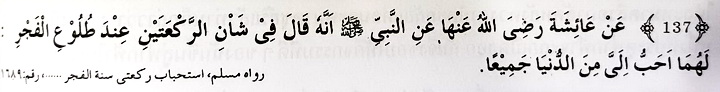 ﴿ 137 ﴾ عَنْ عَائِشَةَ رَضِیَ اللّٰہُ عَنْهَا عَنِ النَّبِيِّ ﷺ اَنَّهُ قَالَ فِیْ شَاْنِ الرَّكْعَتَيْنِ عِنْدَ طُلُوْعِ الْفَجْرِ :
لَهُمَا اَحَبُّ اِلَیَّ مِنَ الدُّنْيَا جَمِيْعًا.
رواه مسلم، استحباب ركعتى سنة الفجر ......، رقم:١٦٨٩